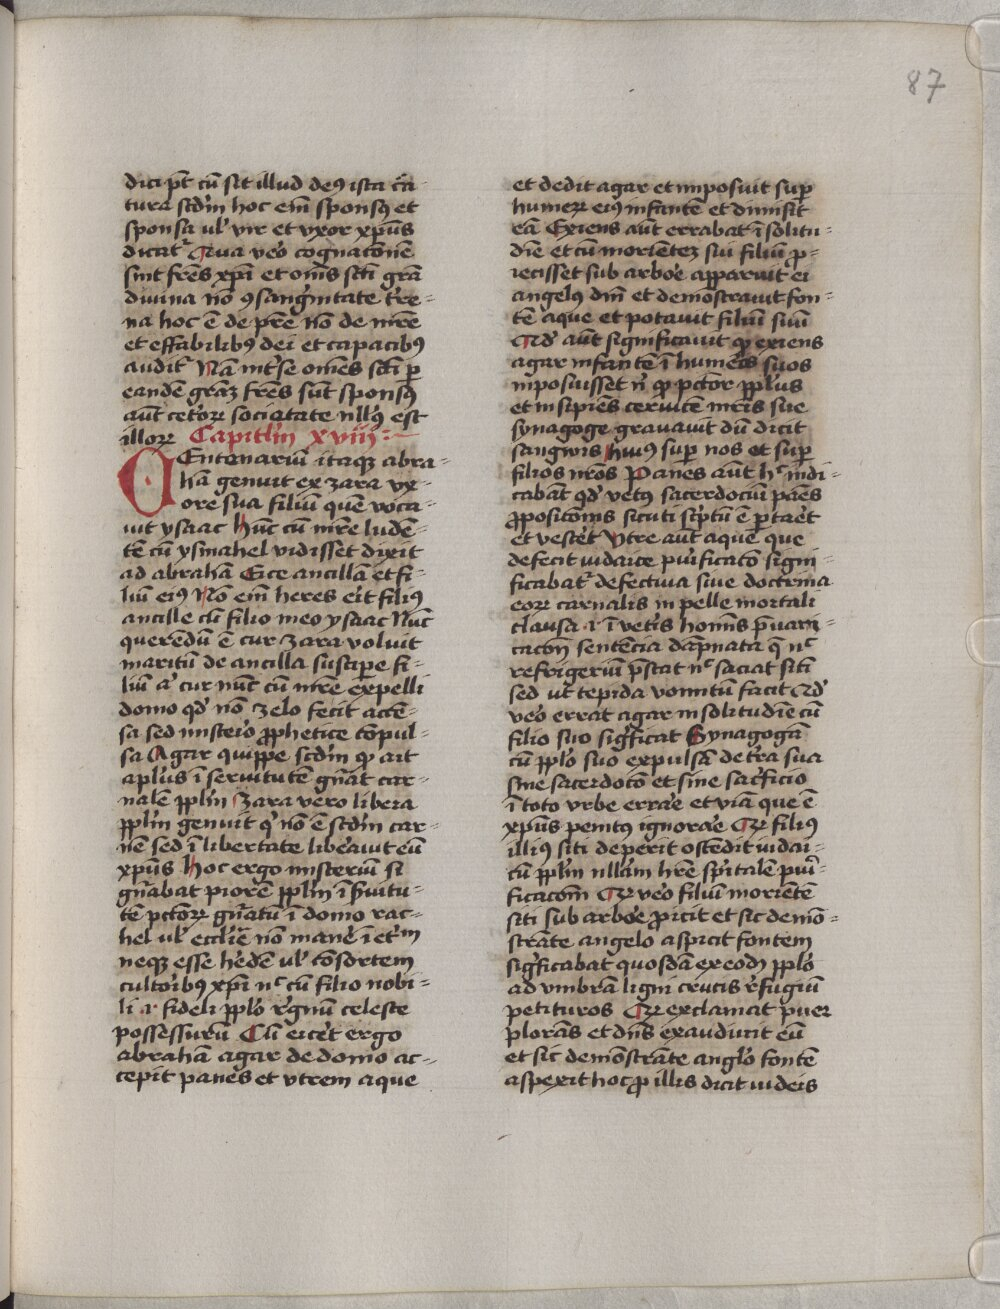 87
dici pt̄ cū sit illud deꝰ ista c̄a-
tura scd̄m hoc em̄ sponsꝰ et
sponsa ul̄ vir et vxor xp̄us
dicat᷑ Qua vēo cognacōne
sint frēs xp̄i et om̄s sc̄ti grā
divina nō ꝯsangͥnitate t̄re-
na hoc ē de p̄re nō de mr̄e
et effabilibꝰ dei et capacibꝰ
audit᷑ Nā int᷑se om̄es sc̄ti ꝑ
eandē graꝫ frēs sūt sponsꝰ
aūt cetoꝝ sociatate nllꝰ est
illoꝝ Capitl̄m xviij
CEntenariū itaqꝫ abra-
hā genuit ex zara vx-
ore sua filiū quē voca-
uit ysaac Hūc cū mr̄e ludē-
tē cū ysmahel vidisset dixit
ad abrahā Eice ancillā et fi-
liū eiꝰ Nō em̄ heres erit filiꝰ
ancille cū filio meo ysaac Nūc
querendū ē cur zara voluit
maritū de ancilla suscipe fi-
liū a᷑ cur nūc cū mr̄e expelli
domo qd̓ nō zelo fecit accē-
sa sed misterō ꝓphetice cōpul-
sa Agar quippe scd̄m ꝙ ait
aplūs ī servitutē gn̄at car-
nalē ppl̄m Zara vero libera
ppl̄m genuit qͥ nō ē scd̄m car-
nē sed ī libertate liberauit eū
xp̄us Hoc ergo misteriū si
gn̄abat priorē ppl̄m ī s̄uitu-
tē pctōꝝ gn̄atū ī domo rac-
hel ul̄ eccl̄ie nō manē ī et̄m
neqꝫ esse h̄edē ul̄ cōsortem
cultoribꝰ xp̄i nᶜ cū filio nobi-
li ⁊ fideli pplō rͤgnū celeste
possessurū Cū eicēt ergo
abrahā agar de domo ac-
cepit panēs et vtrem aque
et dedit agar et imposuit suꝑ
humeꝝ eiꝰ infantē et dimisit
eā Exiens aūt errabat ī solitu-
dīe et cū moriēteꝫ sui filiū ꝓ-
iecisset sub arbōe apparuit ei
angelꝰ dn̄i et demōstrauit fon-
tē aque et potauit filiū suū
Qd̓ aūt significauit ꝙ exiens
agar infantē ī humeros suos
imposuisset nͥ ꝙ pctōr pplūs
et insipiēs ceruicē mr̄is sue
synagoge grauauit dū dicit
sangwis huiꝰ suꝑ nos et suꝑ
filios nr̄os Panes aūt hᶜ indi-
cabāt qd̓ vetꝰ sacerdociū pāes
ꝓposicōnis sicuti sc̄ptū ē ꝑtaēt
et vescēt Vtre aūt aque que
defecit iudaice puificatō signi-
ficabat᷑ defectiua siue doctrina
eoꝝ carnalis in pelle mortali
clausa ⁊ ī vet̄is homīs p̄uari-
cacōn sentēcia dāpnata q̄ nᶜ
refrigeriū p̄stat nᶜ saciat sitī
sed ut tepida vomitū facit Qd̓
vēo errat agar in solitudīe cū
filio suo sigͥficat Synagogā
cū pplō suo expulsā de t̄ra sua
sine sacerdotō et sine sac̄ficio
ī toto vrbe errāe et viā que ē
xp̄us penitꝰ ignorāe Qꝝ filiꝰ
illiꝰ siti deperit ostēdit iudai-
cū ppl̄m nllām hr̄e spr̄italē puͥi-
ficacōm Qꝝ vēo filiū moriētē
siti sub arbōe ꝓicit et sic demō-
strāte angelo aspicit fontem
sigͥficabat quosdā ex eodꝫ pplō
ad vmbrā ligni crucis rͤfugiū
petituros Qꝝ exclamat puer
plorās et dn̄s exaudiuit eū
et sic demōstrāte anglō fontē
aspexit hoc ꝓ illis dicit iudeis